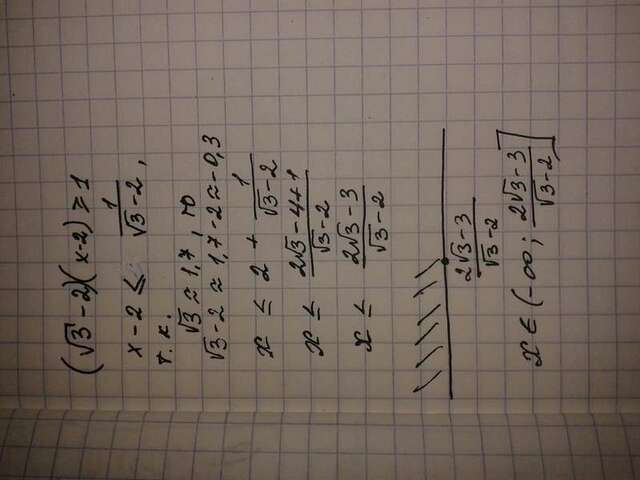 (√3-2)(x-2) ≥ 1
x-2 ≤ 1/(√3-2),
т.к.
√3 ≈ 1,7, то
√3-2 ≈ 1,7-2 ≈ -0,3
x ≤ 2 + 1/(√3-2)
x ≤ (2√3-4+1)/(√3-2)
x ≤ (2√3-3)/(√3-2)
(2√3-3)/(√3-2)
x ∈ (-∞; (2√3-3)/(√3-2)]